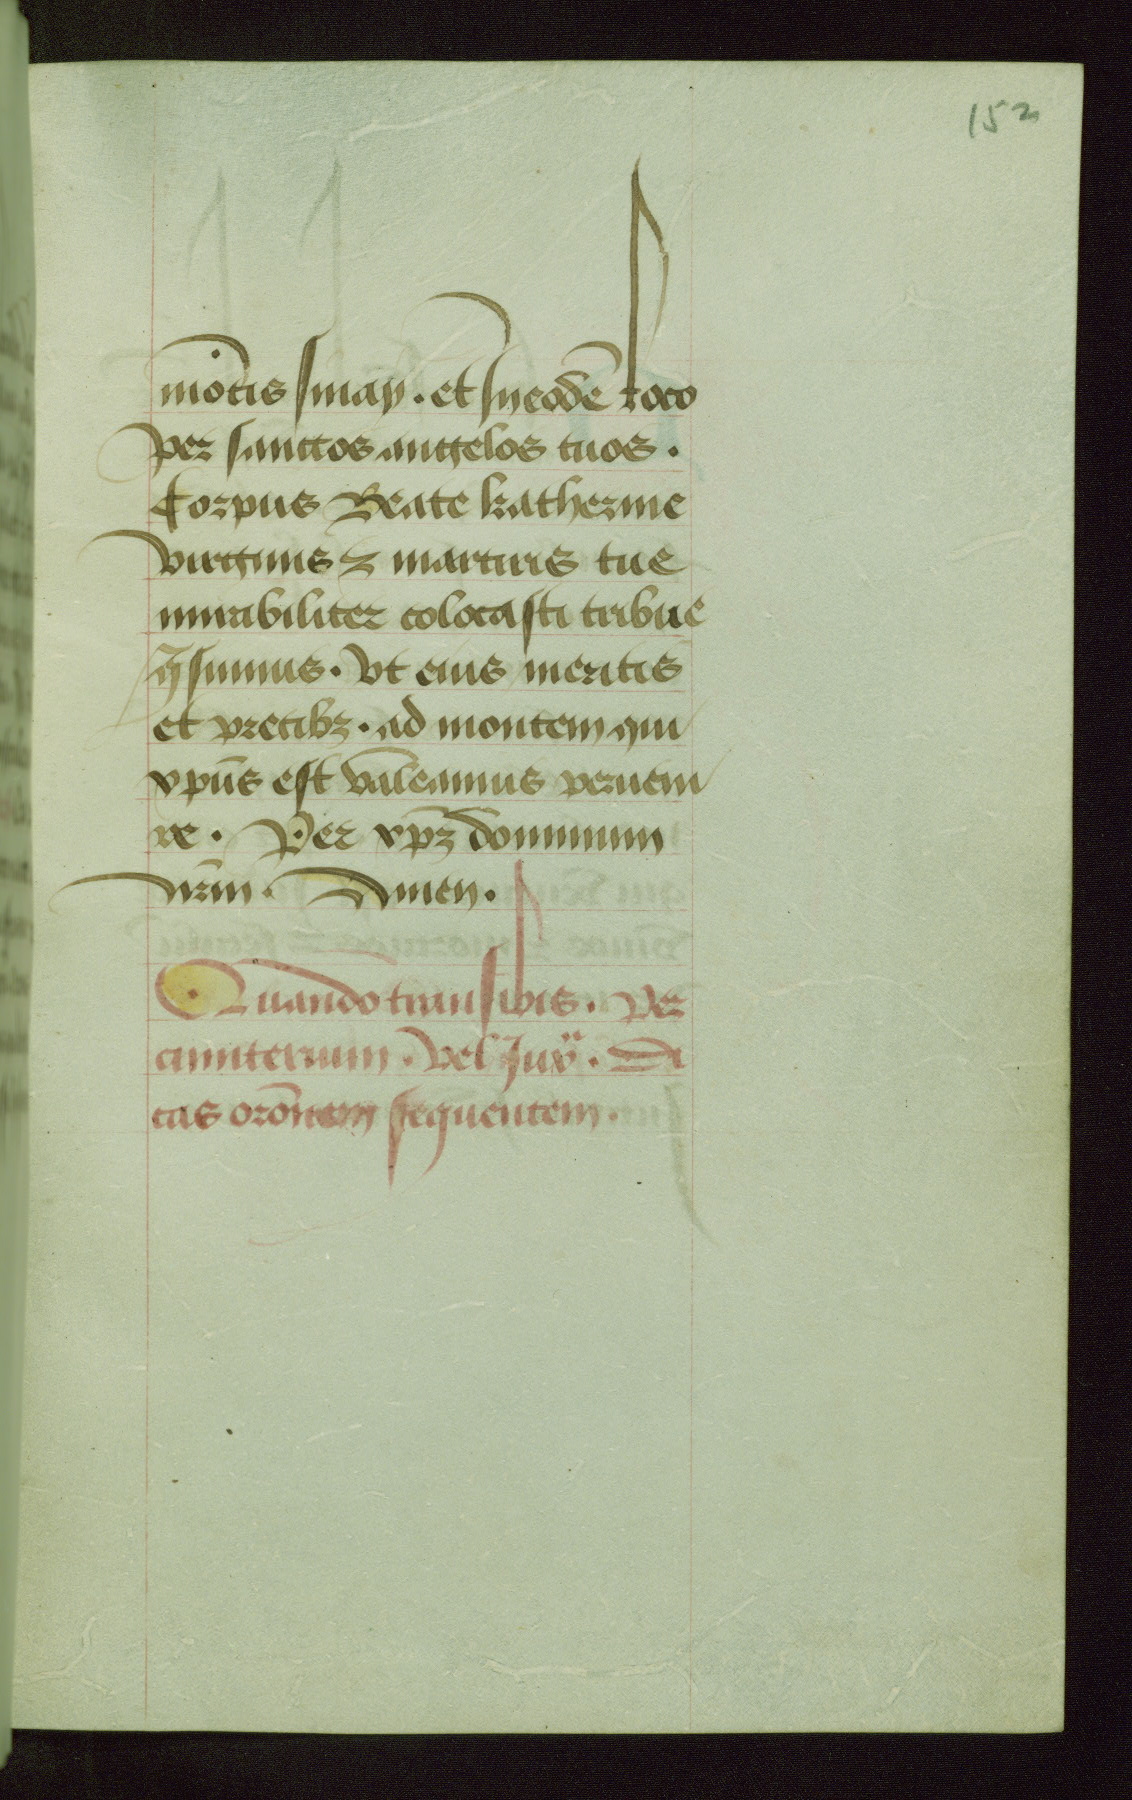 152
mõtis sinay . et in eodē loco
per sanctos angelos tuos .
Corpus Beate katherine
virginis ⁊ martiris tue
mirabiliter colocasti tribue
q̄sumus . Vt eius meritis
et precibꝫ . ad montem qui
xpūs est valeamus perueni
re . Per xp̄ꝫ dominum
nr̄m . Amen .
Quando transibis . Per
cimiterium . Vel iuxͣ . Di
cas orōnem sequentem .